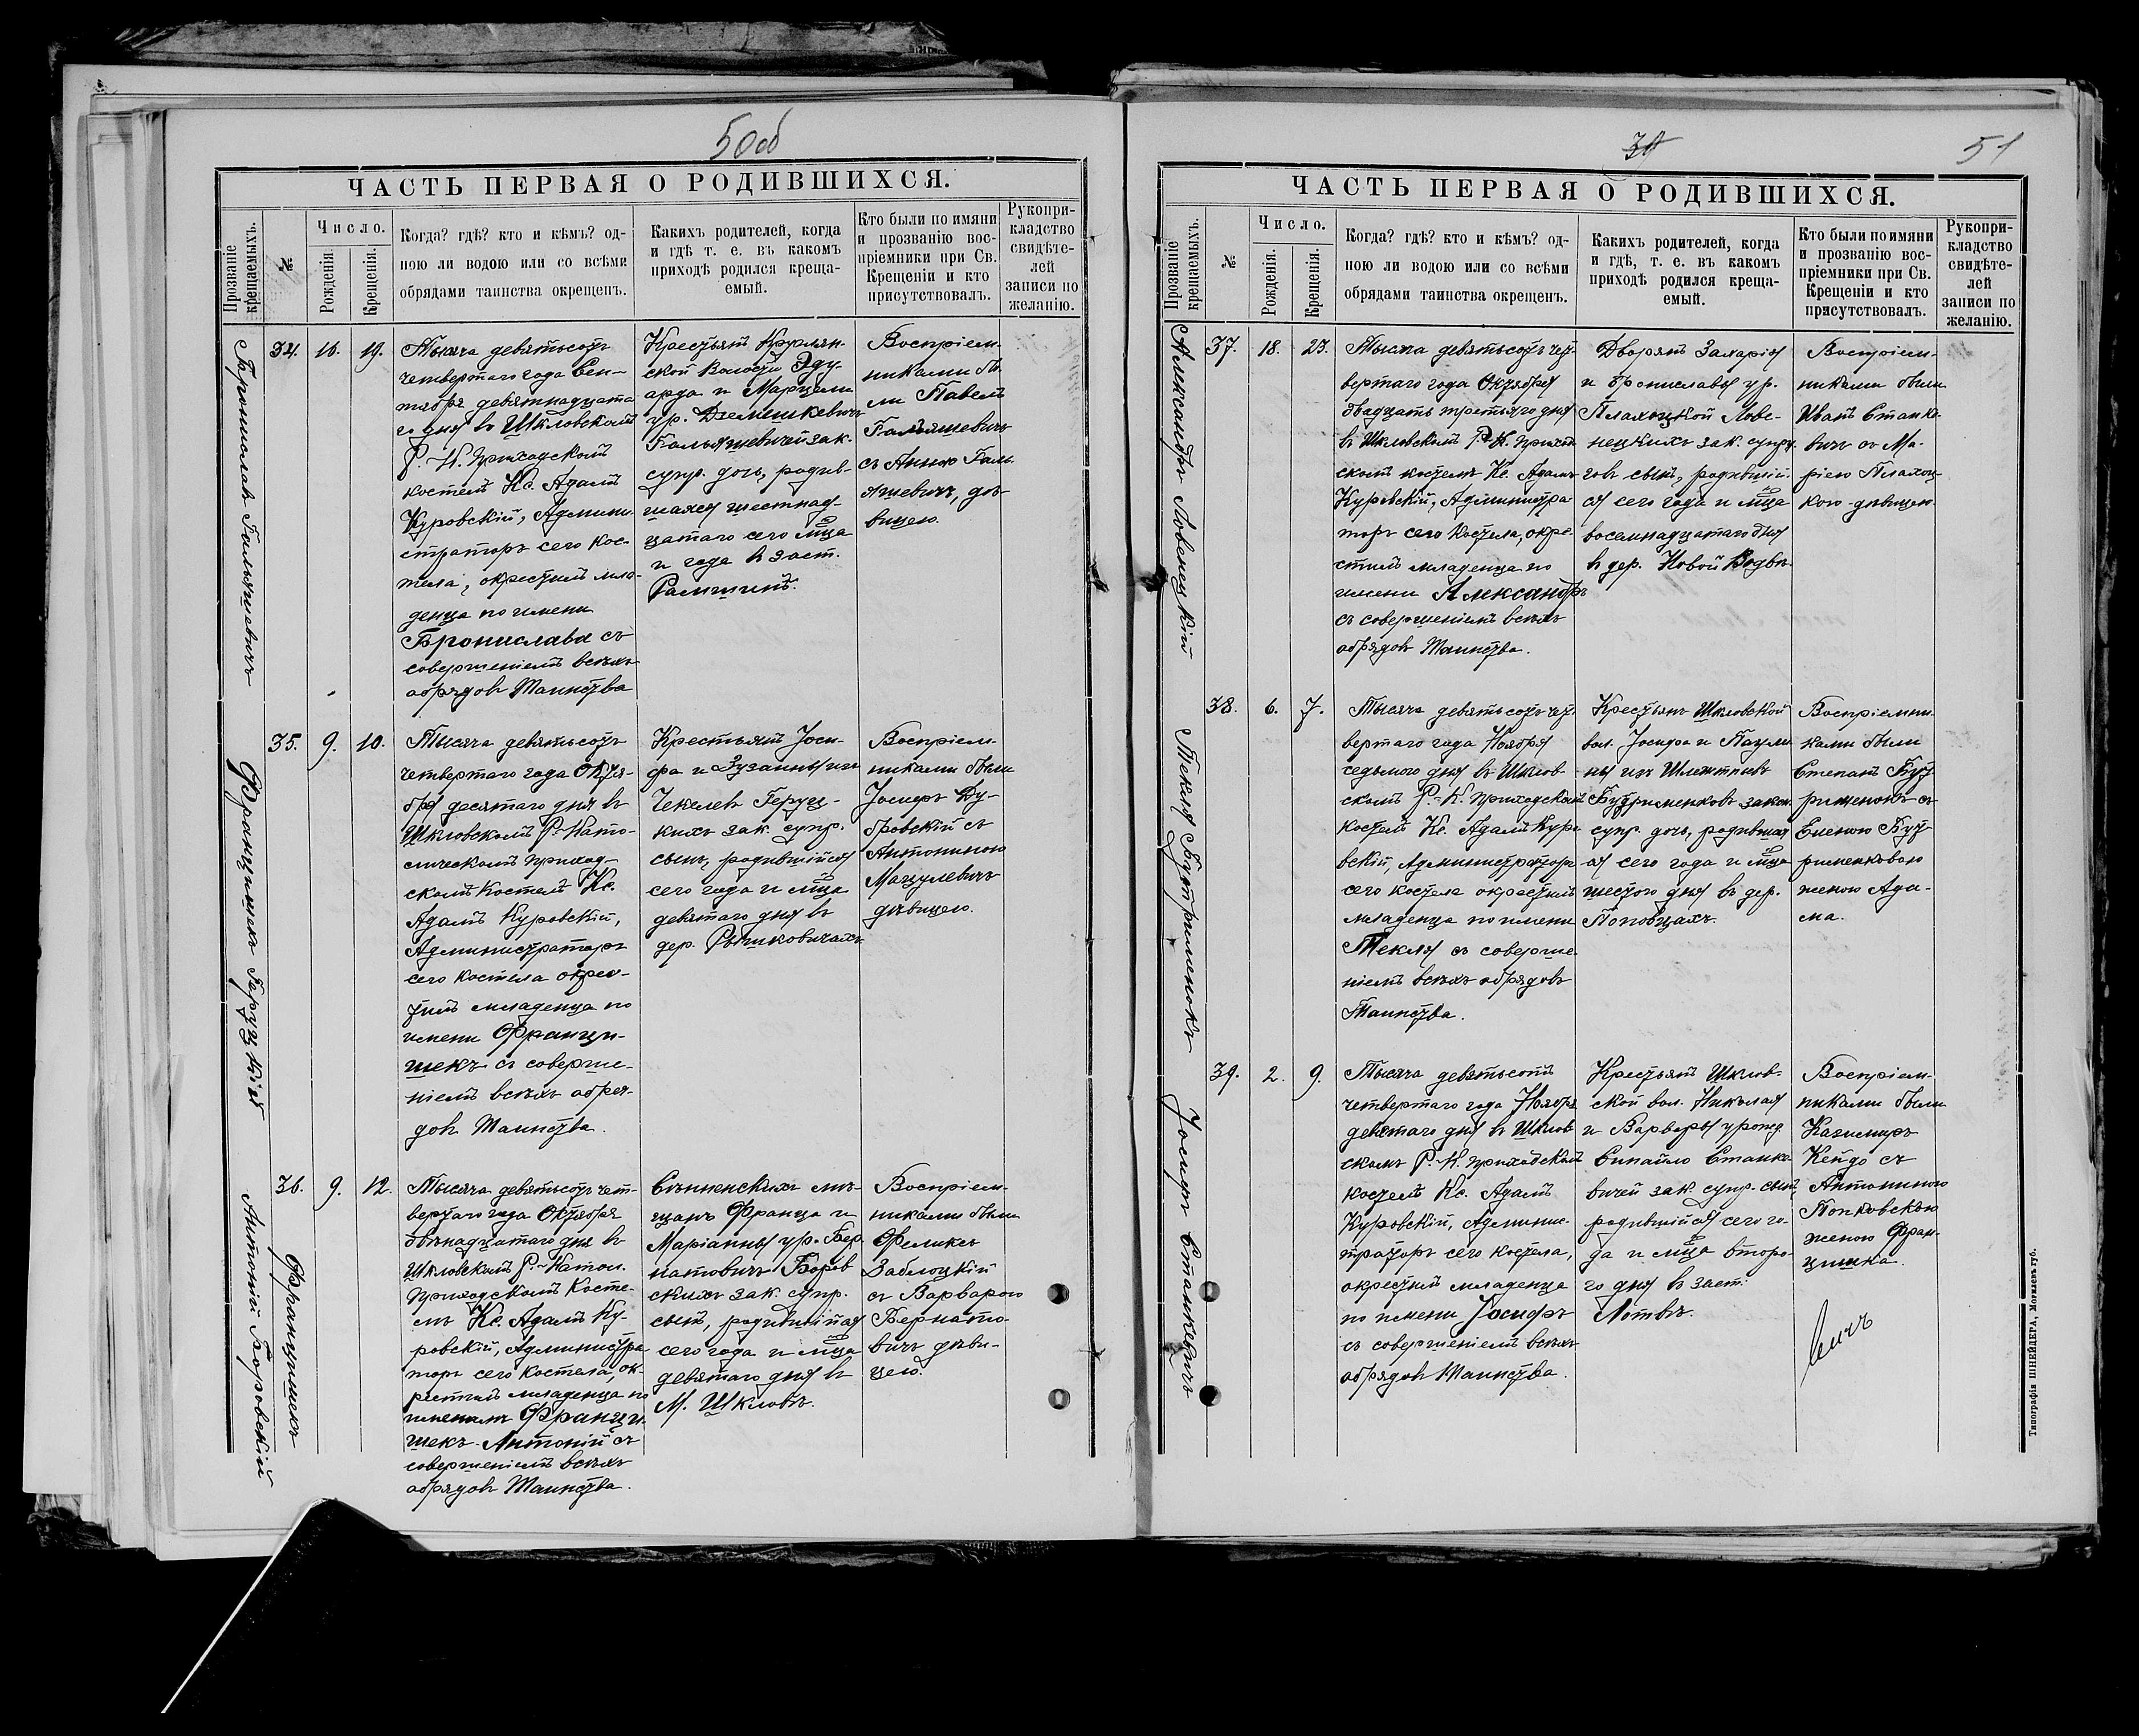 50об
ЧАСТЬ ПЕРВАЯ О РОДИВШИХСЯ.
Прозваніе крещаемыхъ.
№
Число.
Рожденія.
Крещенія.
Когда? гдѣ? кто и кѣмъ? од-
ною ли водою или со всѣми
обрядами таинства окрещенъ.
Какихъ родителей, когда
и гдѣ т. е. въ какомъ
приходѣ родился креща-
емый.
Кто были по имяни
и прозванію вос-
пріемники при Св.
Крещеніи и кто
присутствовалъ.
Рукопри-
кладство
свидѣте-
лей
записи по
желанію.
34.
16.
19.
Тысяча девятьсотъ
четвертаго года Сен-
тября девятнадцата
го дня въ Шкловскомъ
Р.-К. приходскомъ
костелѣ Кс. Адамъ
Куровскій, Админи-
страторъ сего кос-
тела, окрестилъ мла-
денца по имени
Бронислава съ
совершеніемъ всѣхъ
обрядовъ Таинства
Крестьянъ
ской волости Эду-
арда и
ур.
зак.
супр. дочь, родив-
шаяся шестнад-
цатаго сего мѣца
и года въ заст.
Воспріем-
никами бы-
ли Павелъ
съ Анною
дѣ-
вицею.
35.
9.
10.
Францишекъ Геруцкій
Тысяча девятьсотъ
четвертаго года Октя-
бря десятаго дня въ
Шкловскомъ Р.-Като-
лическомъ приход-
скомъ костелѣ Кс.
Адамъ Куровскій,
Администраторъ
сего костела окрес-
тилъ младенца по
имени Францы-
шекъ съ соверше-
ніемъ всѣхъ обря-
довъ Таинства.
Крестьянъ Іоси-
фа и Зузанны изъ
Геруц-
кихъ зак. супр.
сынъ, родившійся
сего года и мѣца
девятаго дня въ
дер. Рыжковичахъ.
Воспріем-
никами были
Іосифъ Ду-
бровскій съ
Антониною
Мацулевичъ
дѣвицею.
36.
9.
12.
Францишекъ
Антоній Боровскій
Тысяча девятьсотъ чет-
вертаго года Октября
двѣнадцатаго дня въ
Шкловскомъ Р.-Катол.
приходскомъ косте-
лѣ Кс. Адамъ Ку-
ровскій, Администра
торъ сего костела, ок-
рестилъ младенца по
именемъ Францы-
шекъ-Антоній съ
совершеніемъ всѣхъ
обрядовъ Таинства.
Сѣнненскихъ мѣ-
щанъ Франца и
Маріанны ур. Бер-
натовичъ Боров-
скихъ зак. супр.
сынъ, родившійся
сего года и мѣца
девятаго дня въ
М. Шкловѣ.
Воспріем-
никами были
Феликсъ
Заблоцкій
съ Варварою
Бернато-
вичъ дѣви-
цею.
51
ЧАСТЬ ПЕРВАЯ О РОДИВШИХСЯ.
Прозваніе крещаемыхъ.
№
Число.
Рожденія.
Крещенія.
Когда? гдѣ? кто и кѣмъ? од-
ною ли водою или со всѣми
обрядами таинства окрещенъ.
Какихъ родителей, когда
и гдѣ, т. е. въ какомъ
приходѣ родился креща-
емый.
Кто были по имяни
и прозванію вос-
пріемники при Св.
Крещеніи и кто
присутствовалъ.
Рукопри-
кладство
свидѣте-
лей
записи по
желанію.
Александръ Ловенецкій
37.
18.
23.
Тысяча девятьсотъ чет-
вертаго года Октября
двадцать третьяго дня
въ Шкловскомъ Р.-К. приход
скомъ костелѣ Кс. Адамъ
Куровскій, Администра-
торъ сего костела, окре-
стилъ младенца по
имени Александръ
съ совершеніемъ всѣхъ
обрядовъ Таинства.
Дворянъ Захарія
и Брониславы ур.
Ловe-
нецкихъ зак. супру-
говъ сынъ, родившій-
ся сего года и мѣца
восемнадцатаго дня
въ дер. Новой Водвѣ.
Воспріем-
никами были
Иванъ Станке-
вичъ съ Ма-
ріею
кою дѣвицею.
Текля Бутрименокъ
38.
6.
7.
Тысяча девятьсотъ чет-
вертаго года Ноября
седьмого дня въ Шклов-
скомъ Р.-К. приходскомъ
костелѣ Кс. Адамъ Куро-
вскій, Администраторъ
сего костела окрестилъ
младенца по имени
Текля съ соверше-
ніемъ всѣхъ обрядовъ
Таинства.
Крестьянъ Шкловской
вол. Іосифа и Паули-
ны изъ
Бутрименковъ закон.
супр. дочь, родившая
ся сего года и мѣца
шестого дня въ дер.
Поповцахъ.
Воспріемни-
ками были
Степанъ Бут-
рименокъ съ
Еленою Бут-
рименковою
женою Ада-
ма.
Іосифъ Станкевичъ
39.
2.
9.
Тысяча девятьсотъ
четвертаго года Ноября
девятаго дня въ Шклов-
скомъ Р.-К. приходскомъ
костелѣ Кс. Адамъ
Куровскій, Админис-
траторъ сего костела,
окрестилъ младенца
по имени Іосифъ
съ совершеніемъ всѣхъ
обрядовъ Таинства.
Крестьянъ Шклов-
ской вол. Николая
и Варвары урожд.
Синайло Станке-
вичей зак. супр. сынъ,
родившійся сего го-
да и мѣца второ-
го дня въ заст.
Лотвѣ.
Воспріем-
никами были
Казимиръ
Кейдо съ
Антониною
Попковскою
женою Фран-
цишка.
Типографія ШНЕЙДЕРА, Могилевъ губ.